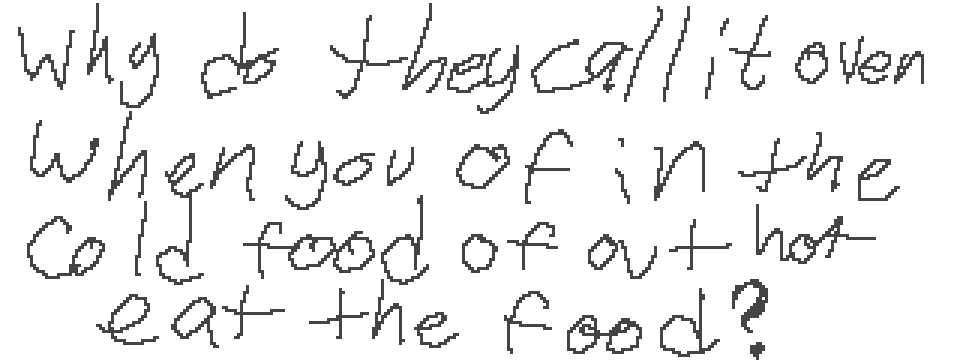 Why do they call it oven
When you of in the
Cold food of out hot
eat the food?